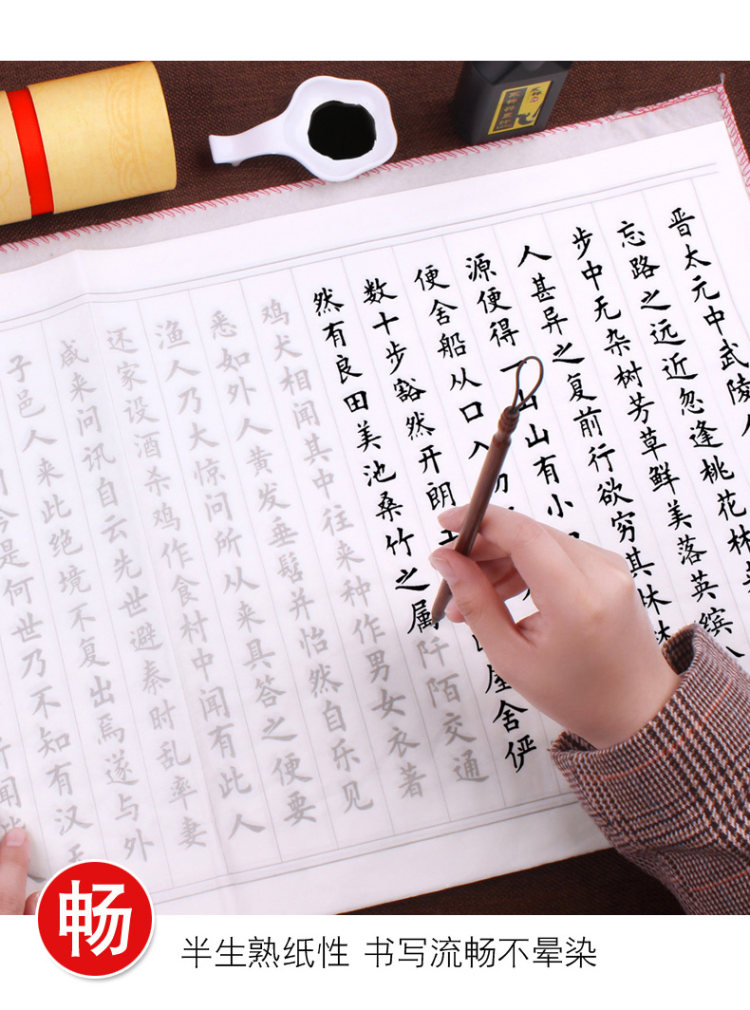 晋太元中武陵人
忘路之远近忽逢桃花林夹
步中无杂树芳草鲜美落英缤
人甚异之复前行欲穷其林林
源便得一山山有小
便舍船从口入初
数十步豁然开朗土 屋舍俨
然有良田美池桑竹之属阡陌交通
鸡犬相闻其中往来种作男女衣著
悉如外人黄发垂髫并怡然自乐见
渔人乃大惊问所从来具答之便要
还家设酒杀鸡作食村中闻有此人
咸来问讯自云先世避秦时乱率妻
子邑人来此绝境不复出焉遂与外
问今是何世乃不知有汉无
所闻皆
畅
半生熟纸性 书写流畅不晕染